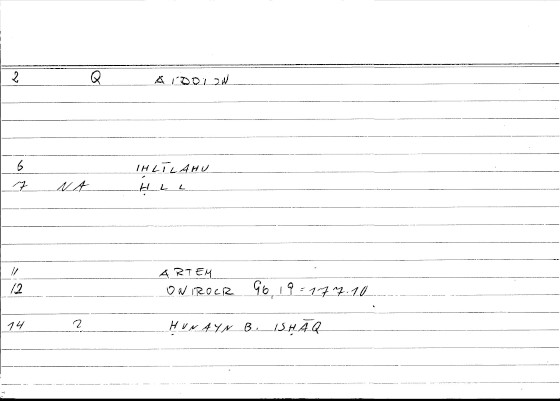 2 Q AIDOION
6 IḤLĪLAHU
7 NA ḤLL
11 ARTEM
12 ONIROCR 96,19=177.10
14 2 ḤUNAYN B. ISḤĀQ